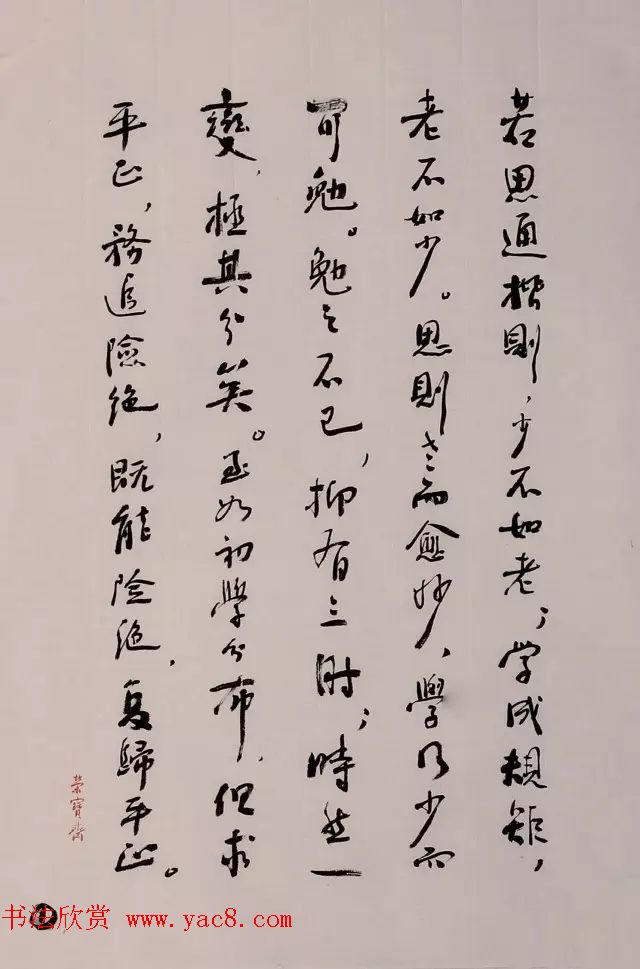 若思通楷則，少不如老；学成規矩，
老不如少。思則老而愈妙，學乃少而
可勉。勉之不已，抑有三时；時然一
變，極其分矣。至如初學分布，但求
平正，務追險絶，既能险絶，复歸平正。
榮寶齋
书法欣赏 www.yac8.com